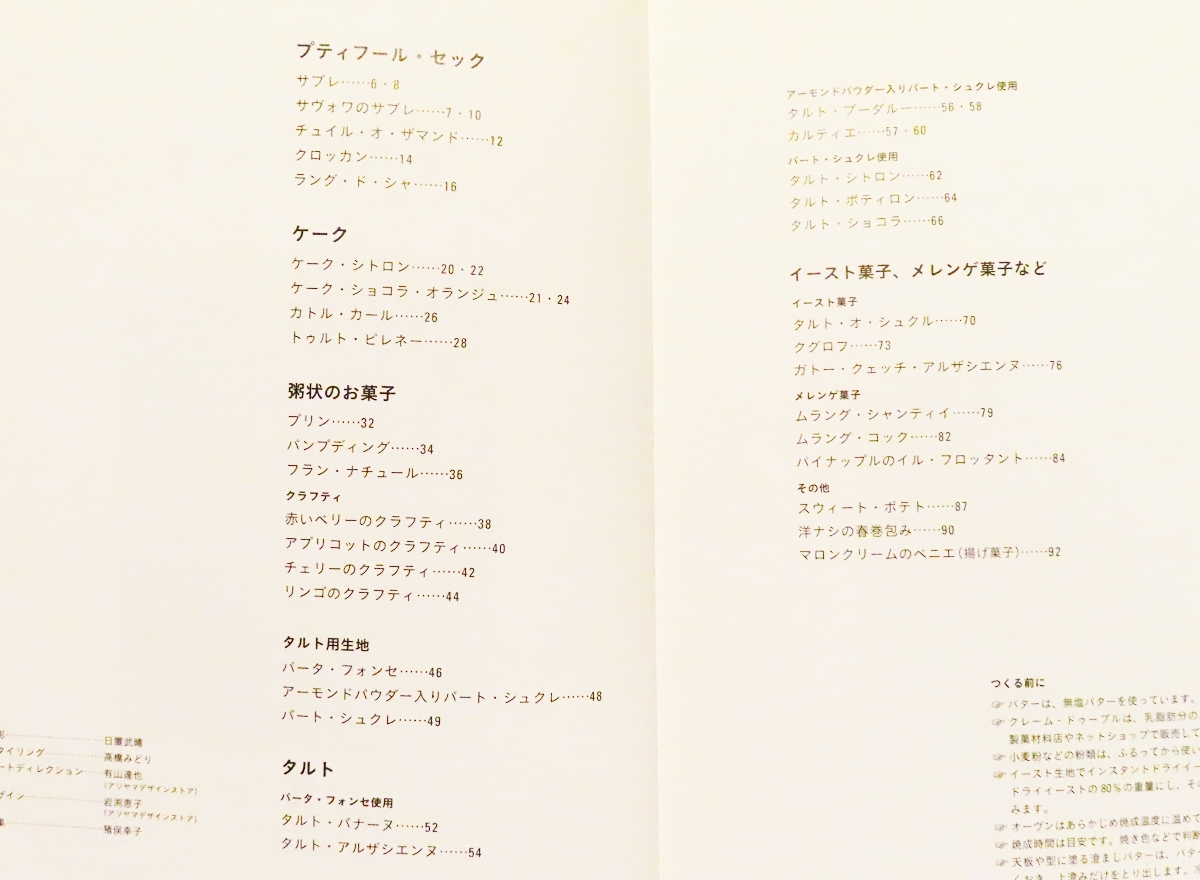 プティフール・セック
サブレ……6・8
サヴォワのサブレ……7・10
チュイル・オ・ザマンド……12
クロッカン……14
ラング・ド・シャ……16
ケーク
ケーク・シトロン……20・22
ケーク・ショコラ・オランジュ……21・24
カトル・カール……26
トゥルト・ピレネー……28
粥状のお菓子
プリン……32
パンプディング……34
フラン・ナチュール……36
クラフティ
赤いベリーのクラフティ……38
アプリコットのクラフティ……40
チェリーのクラフティ……42
リンゴのクラフティ……44
タルト用生地
パータ・フォンセ……46
アーモンドパウダー入りパート・シュクレ……48
パート・シュクレ……49
タルト
パータ・フォンセ使用
タルト・バナーヌ……52
タルト・アルザシエンヌ……54
影……日置武晴
タイリング……高橋みどり
ートディレクション……有山達也
(アリヤマデザインストア)
ザイン……岩渕恵子
(アリヤマデザインストア)
集……猪俣幸子
アーモンドパウダー入りパート・シュクレ使用
タルト・ブーダルー……56・58
カルティエ……57・60
パート・シュクレ使用
タルト・シトロン……62
タルト・ポティロン……64
タルト・ショコラ……66
イースト菓子、メレンゲ菓子など
イースト菓子
タルト・オ・シュクル……70
クグロフ……73
ガトー・クェッチ・アルザシエンヌ……76
メレンゲ菓子
ムラング・シャンティイ……79
ムラング・コック……82
パイナップルのイル・フロッタント……84
その他
スウィート・ポテト……87
洋ナシの春巻包み……90
マロンクリームのベニエ(揚げ菓子)……92
つくる前に
☞ バターは、無塩バターを使っています。
☞ クレーム・ドゥーブルは、乳脂肪分の
製菓材料店やネットショップで販売して
☞ 小麦粉などの粉類は、ふるってから使い
☞ イースト生地でインスタントドライイー
ドライイーストの80%の重量にし、その
みます。
☞ オーヴンはあらかじめ焼成温度に温めて
☞ 焼成時間は目安です。焼き色などで判断
☞ 天板や型に塗る澄ましバターは、バター
くおき、上澄みだけをとり出します。